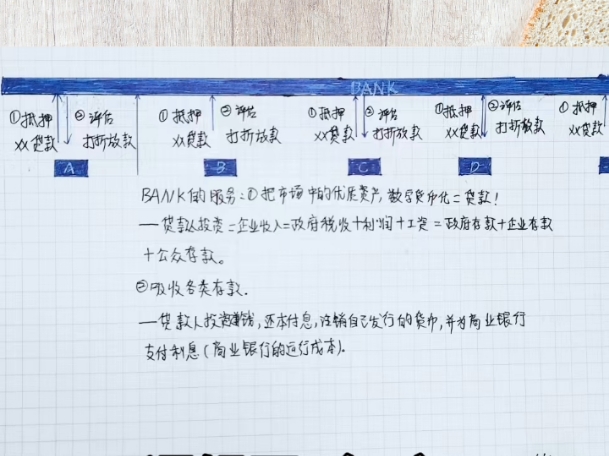 BANK
①抵押 ②评估 ①抵押 ②评估 ①抵押 ②评估 ①抵押 ②评估 ①抵押
XX贷款 打折放款 XX贷款 打折放款 XX贷款 打折放款 XX贷款 打折放款 XX贷款
A B C D
BANK的服务:①把市场中的优质资产,数字货币化=贷款!
—贷款人投资=企业收入=政府税收+利润+工资=政府存款+企业存款
+公众存款。
②吸收各类存款.
—贷款人投资赚钱,还本付息,注销自己发行的货币,并为商业银行
支付利息(商业银行的运行成本).